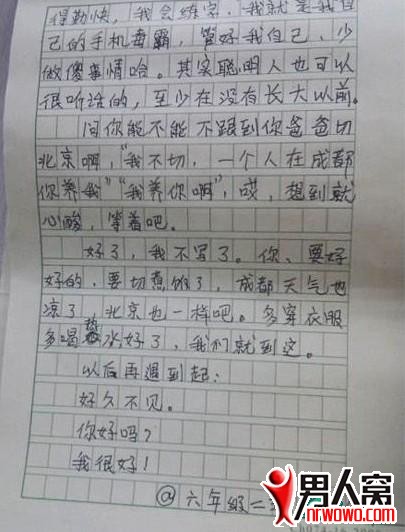 得勤快，我会练字，我就是我自
己的手机毒霸，管好我自己，少
做傻事情哈。其实聪明人也可以
很听话的，至少在没有长大以前。
问你能不能不跟到你爸爸切
北京啊，“我不切，一个人在成都
你养我”“我养你啊”，哎，想到就
心酸，等着吧。
好了，我不写了。你、要好
好的，要切煮饭了，成都天气也
凉了，北京也一样吧。多穿衣服
多喝热水好了，我们就到这。
以后再遇到起：
好久不见。
你好吗？
我很好！
@六年级二
男人窝
nrwowo.com